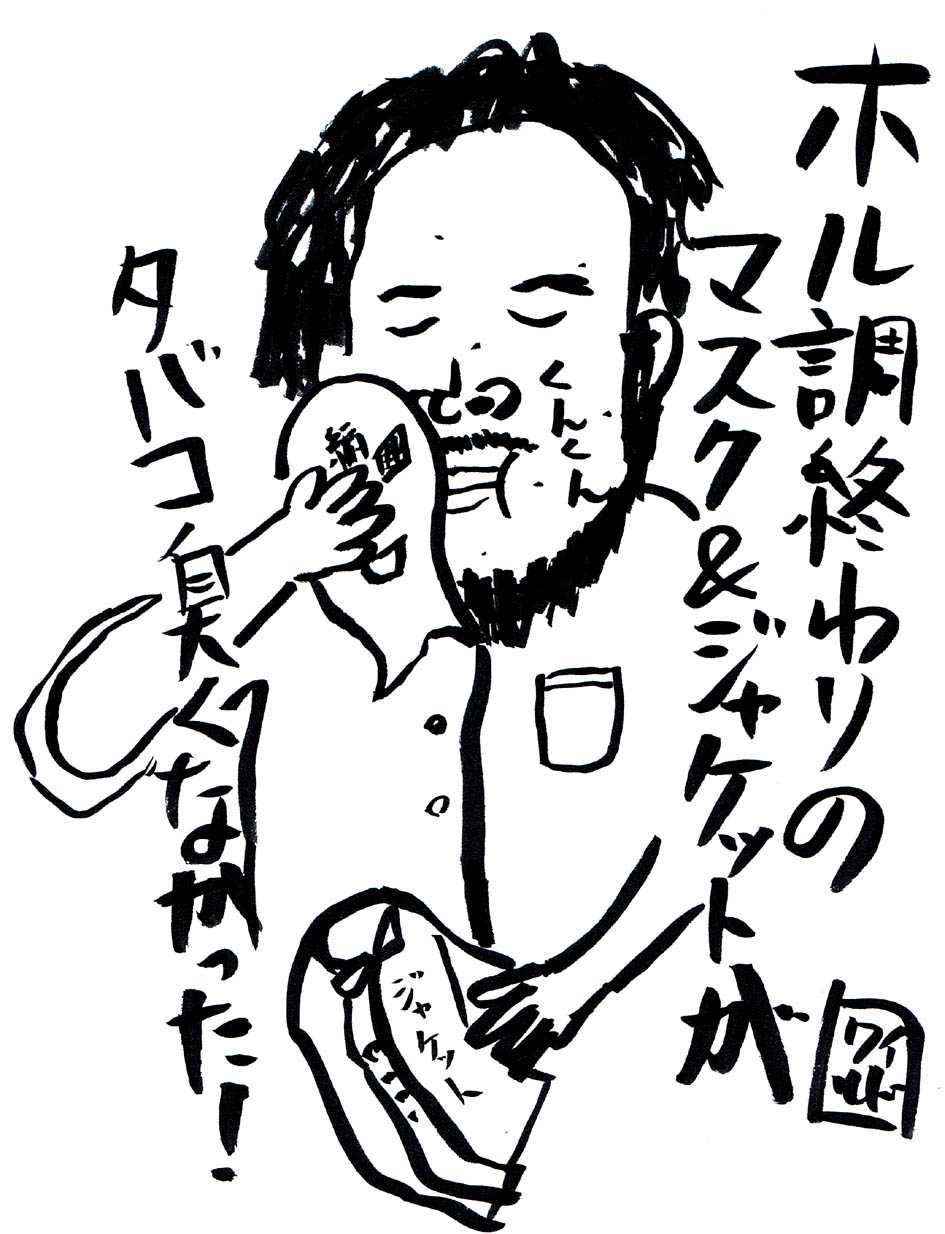 ホル調終わりの
マスク&ジャケットが
タバコ臭くなかった!
くんくん
ジャケット
ワイルド